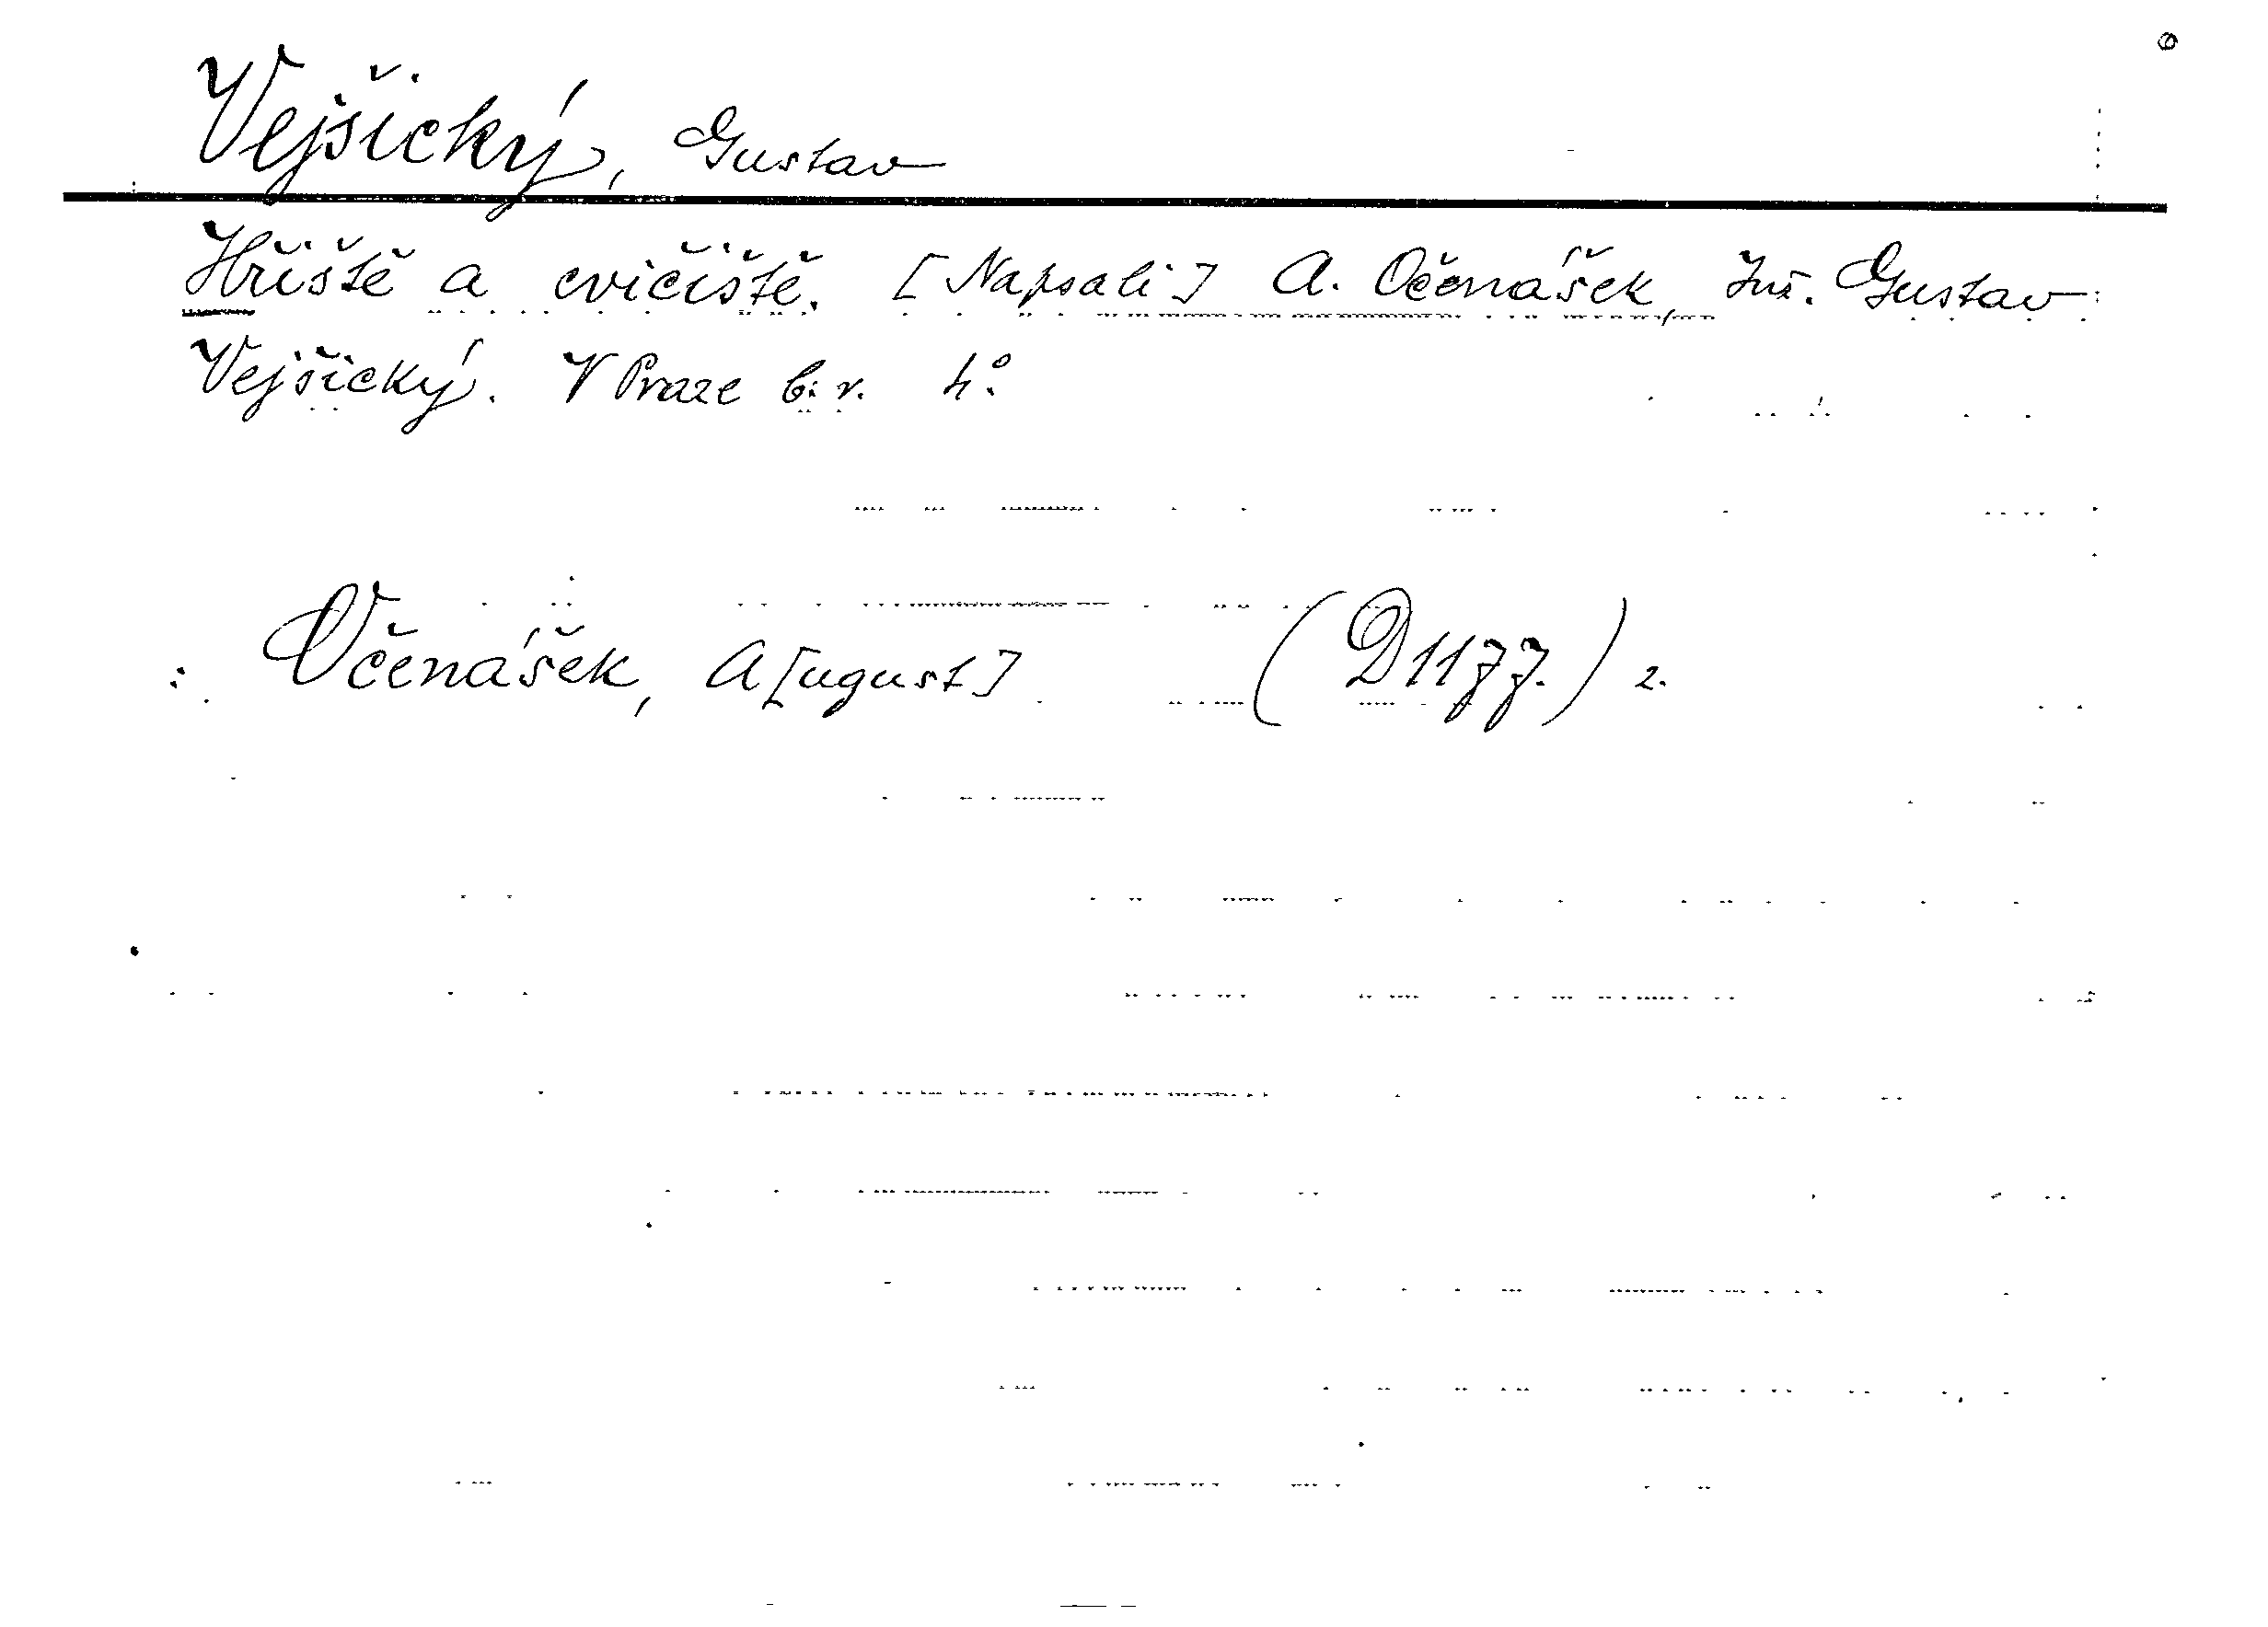 Vejšický, Gustav
Hřiště a cvičiště. [Napsali] A. Očenášek, Inž. Gustav
Vejšický. V Praze b. r. 4°.
Očenášek, A[ugust] (D 1177.) 2.